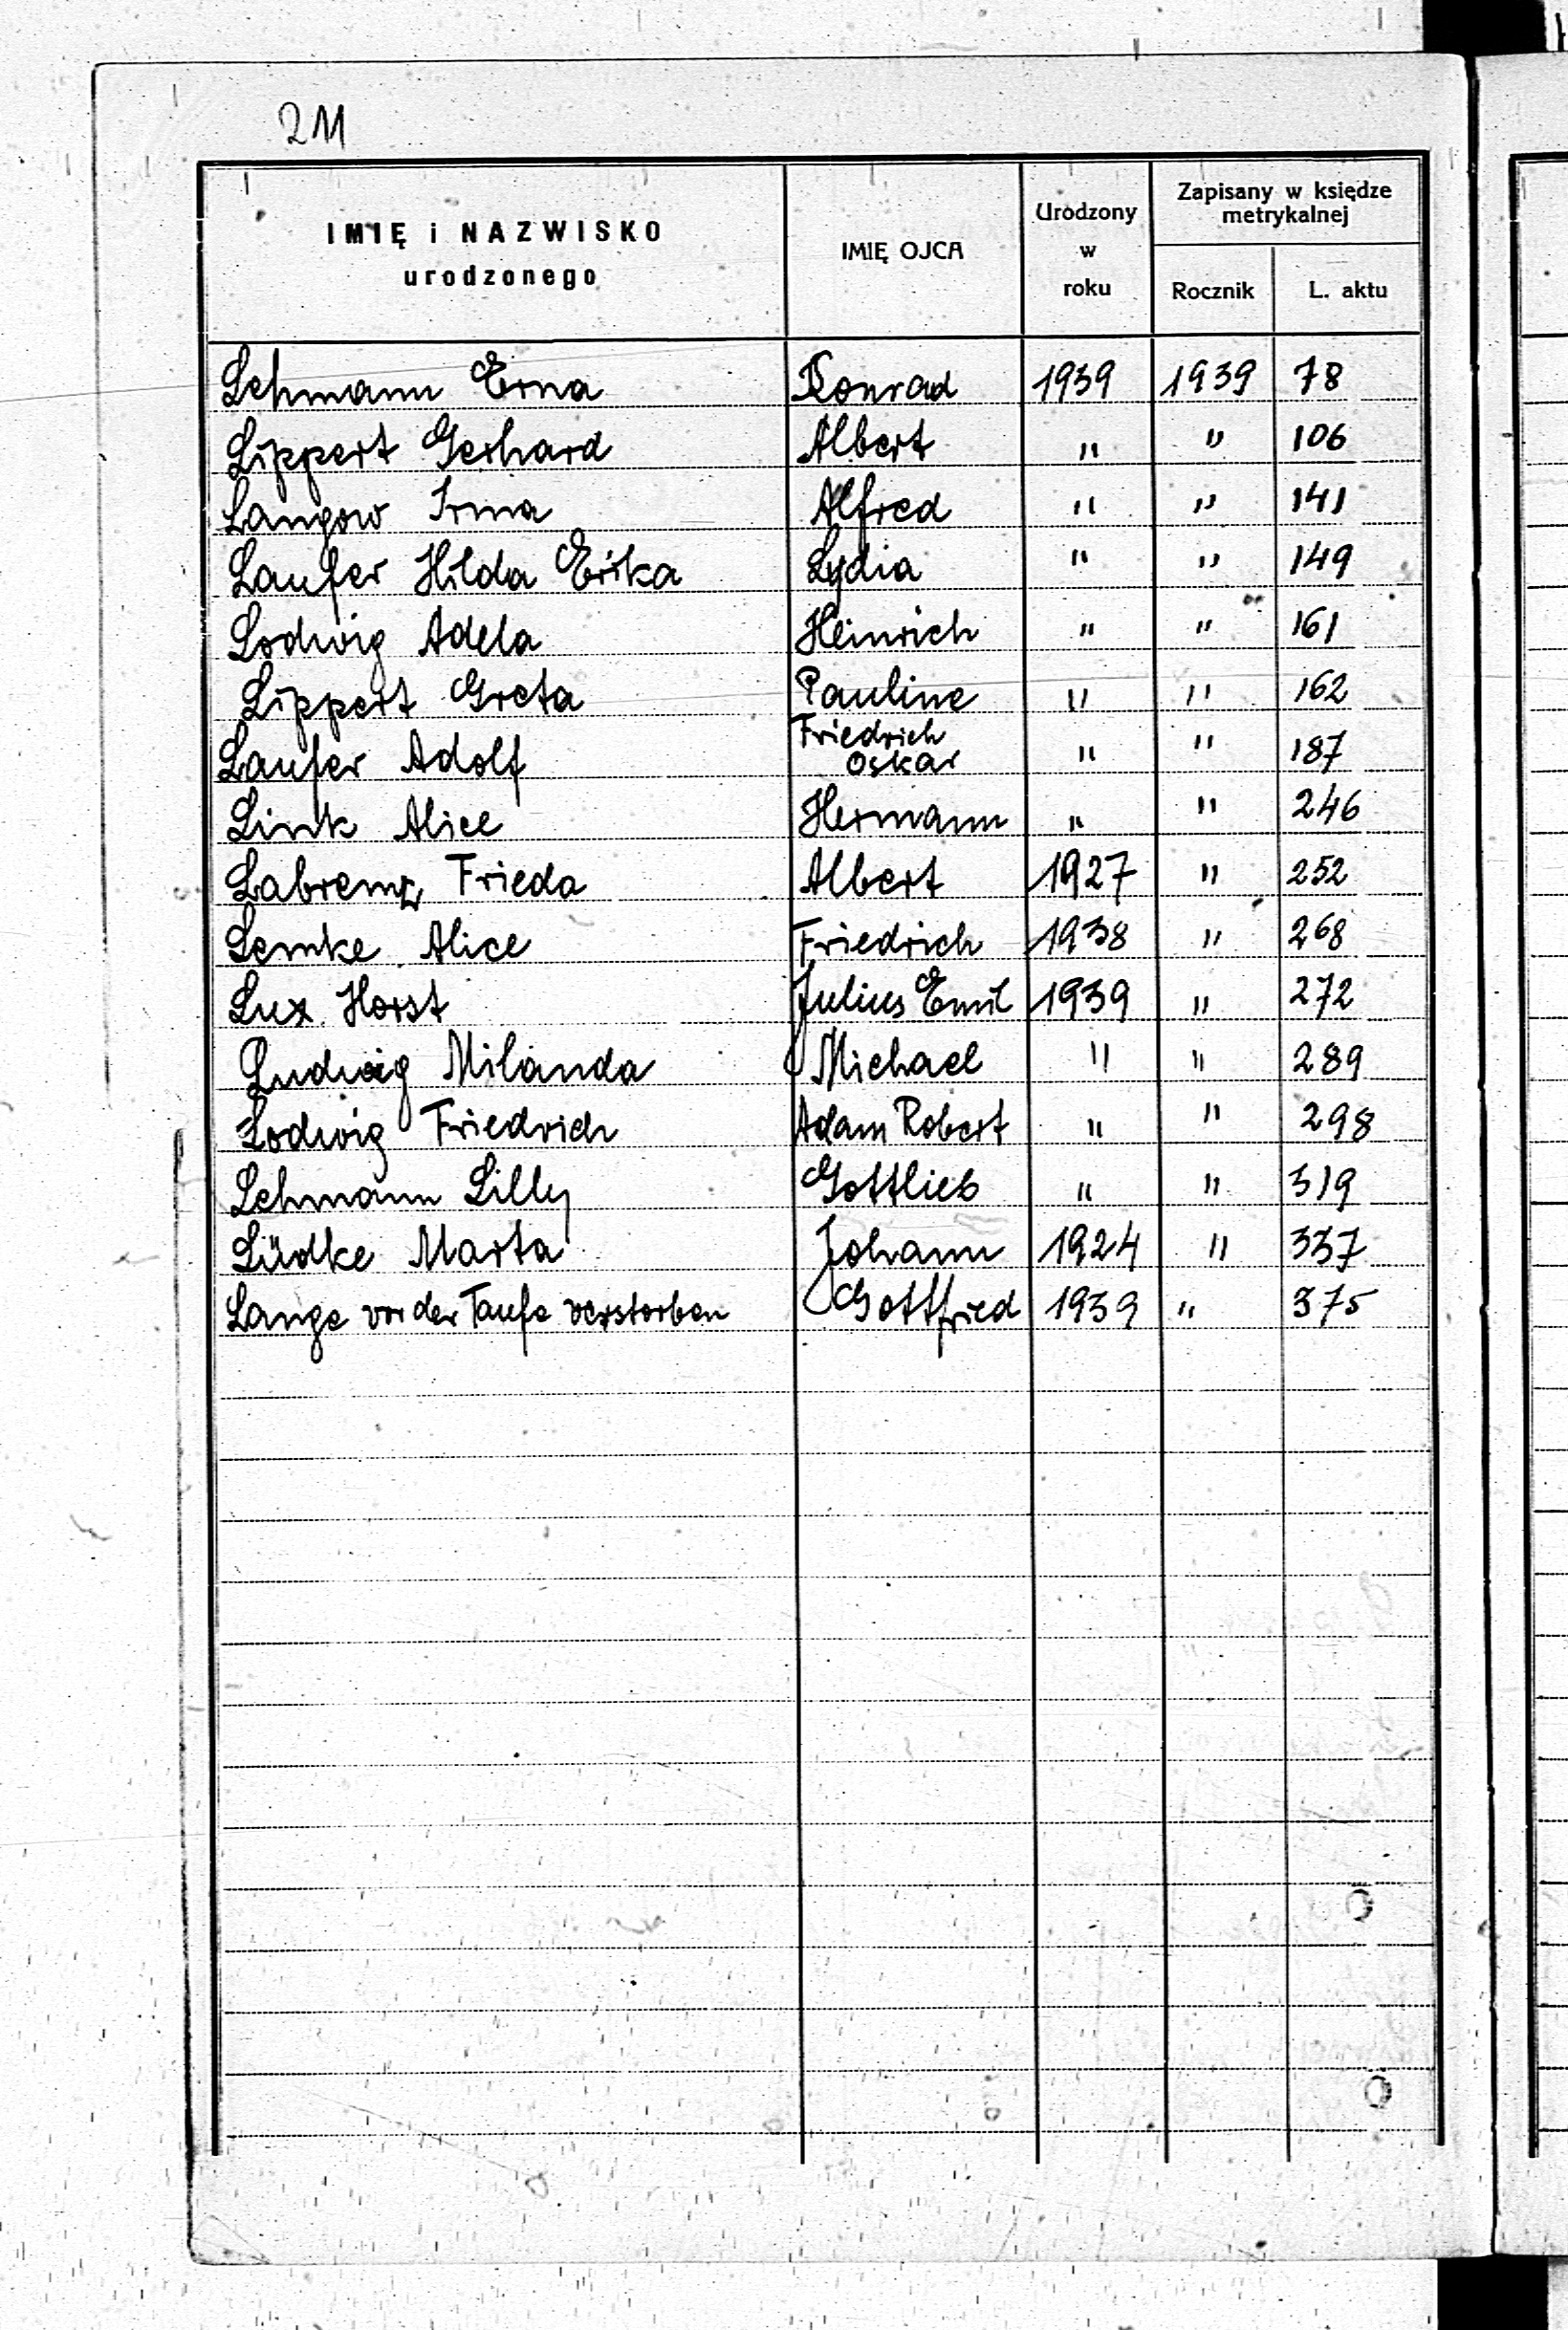 211
IMIĘ i NAZWISKO urodzonego IMIĘ OJCA Urodzony w roku Zapisany w księdze metrykalnej
Rocznik L. aktu
Lehmann Erna Konrad 1939 1939 78
Lippert Gerhard Albert " " 106
Langow Irma Alfred " " 141
Laufer Hilda Erika Lydia " " 149
Lodwig Adela Heinrich " " 161
Lippert Greta Pauline " " 162
Laufer Adolf Friedrich Oskar " " 187
Link Alice Hermann " " 246
Labrenz Frieda Albert 1927 " 252
Lemke Alice Friedrich 1938 " 268
Lux Horst Julius Emil 1939 " 272
Ludwig Milanda Michael " " 289
Lodwig Friedrich Adam Robert " " 298
Lehmann Lilly Gottlieb " " 319
Lüdke Marta Johann 1924 " 337
Lange vor der Taufe verstorben Gottfried 1939 " 375